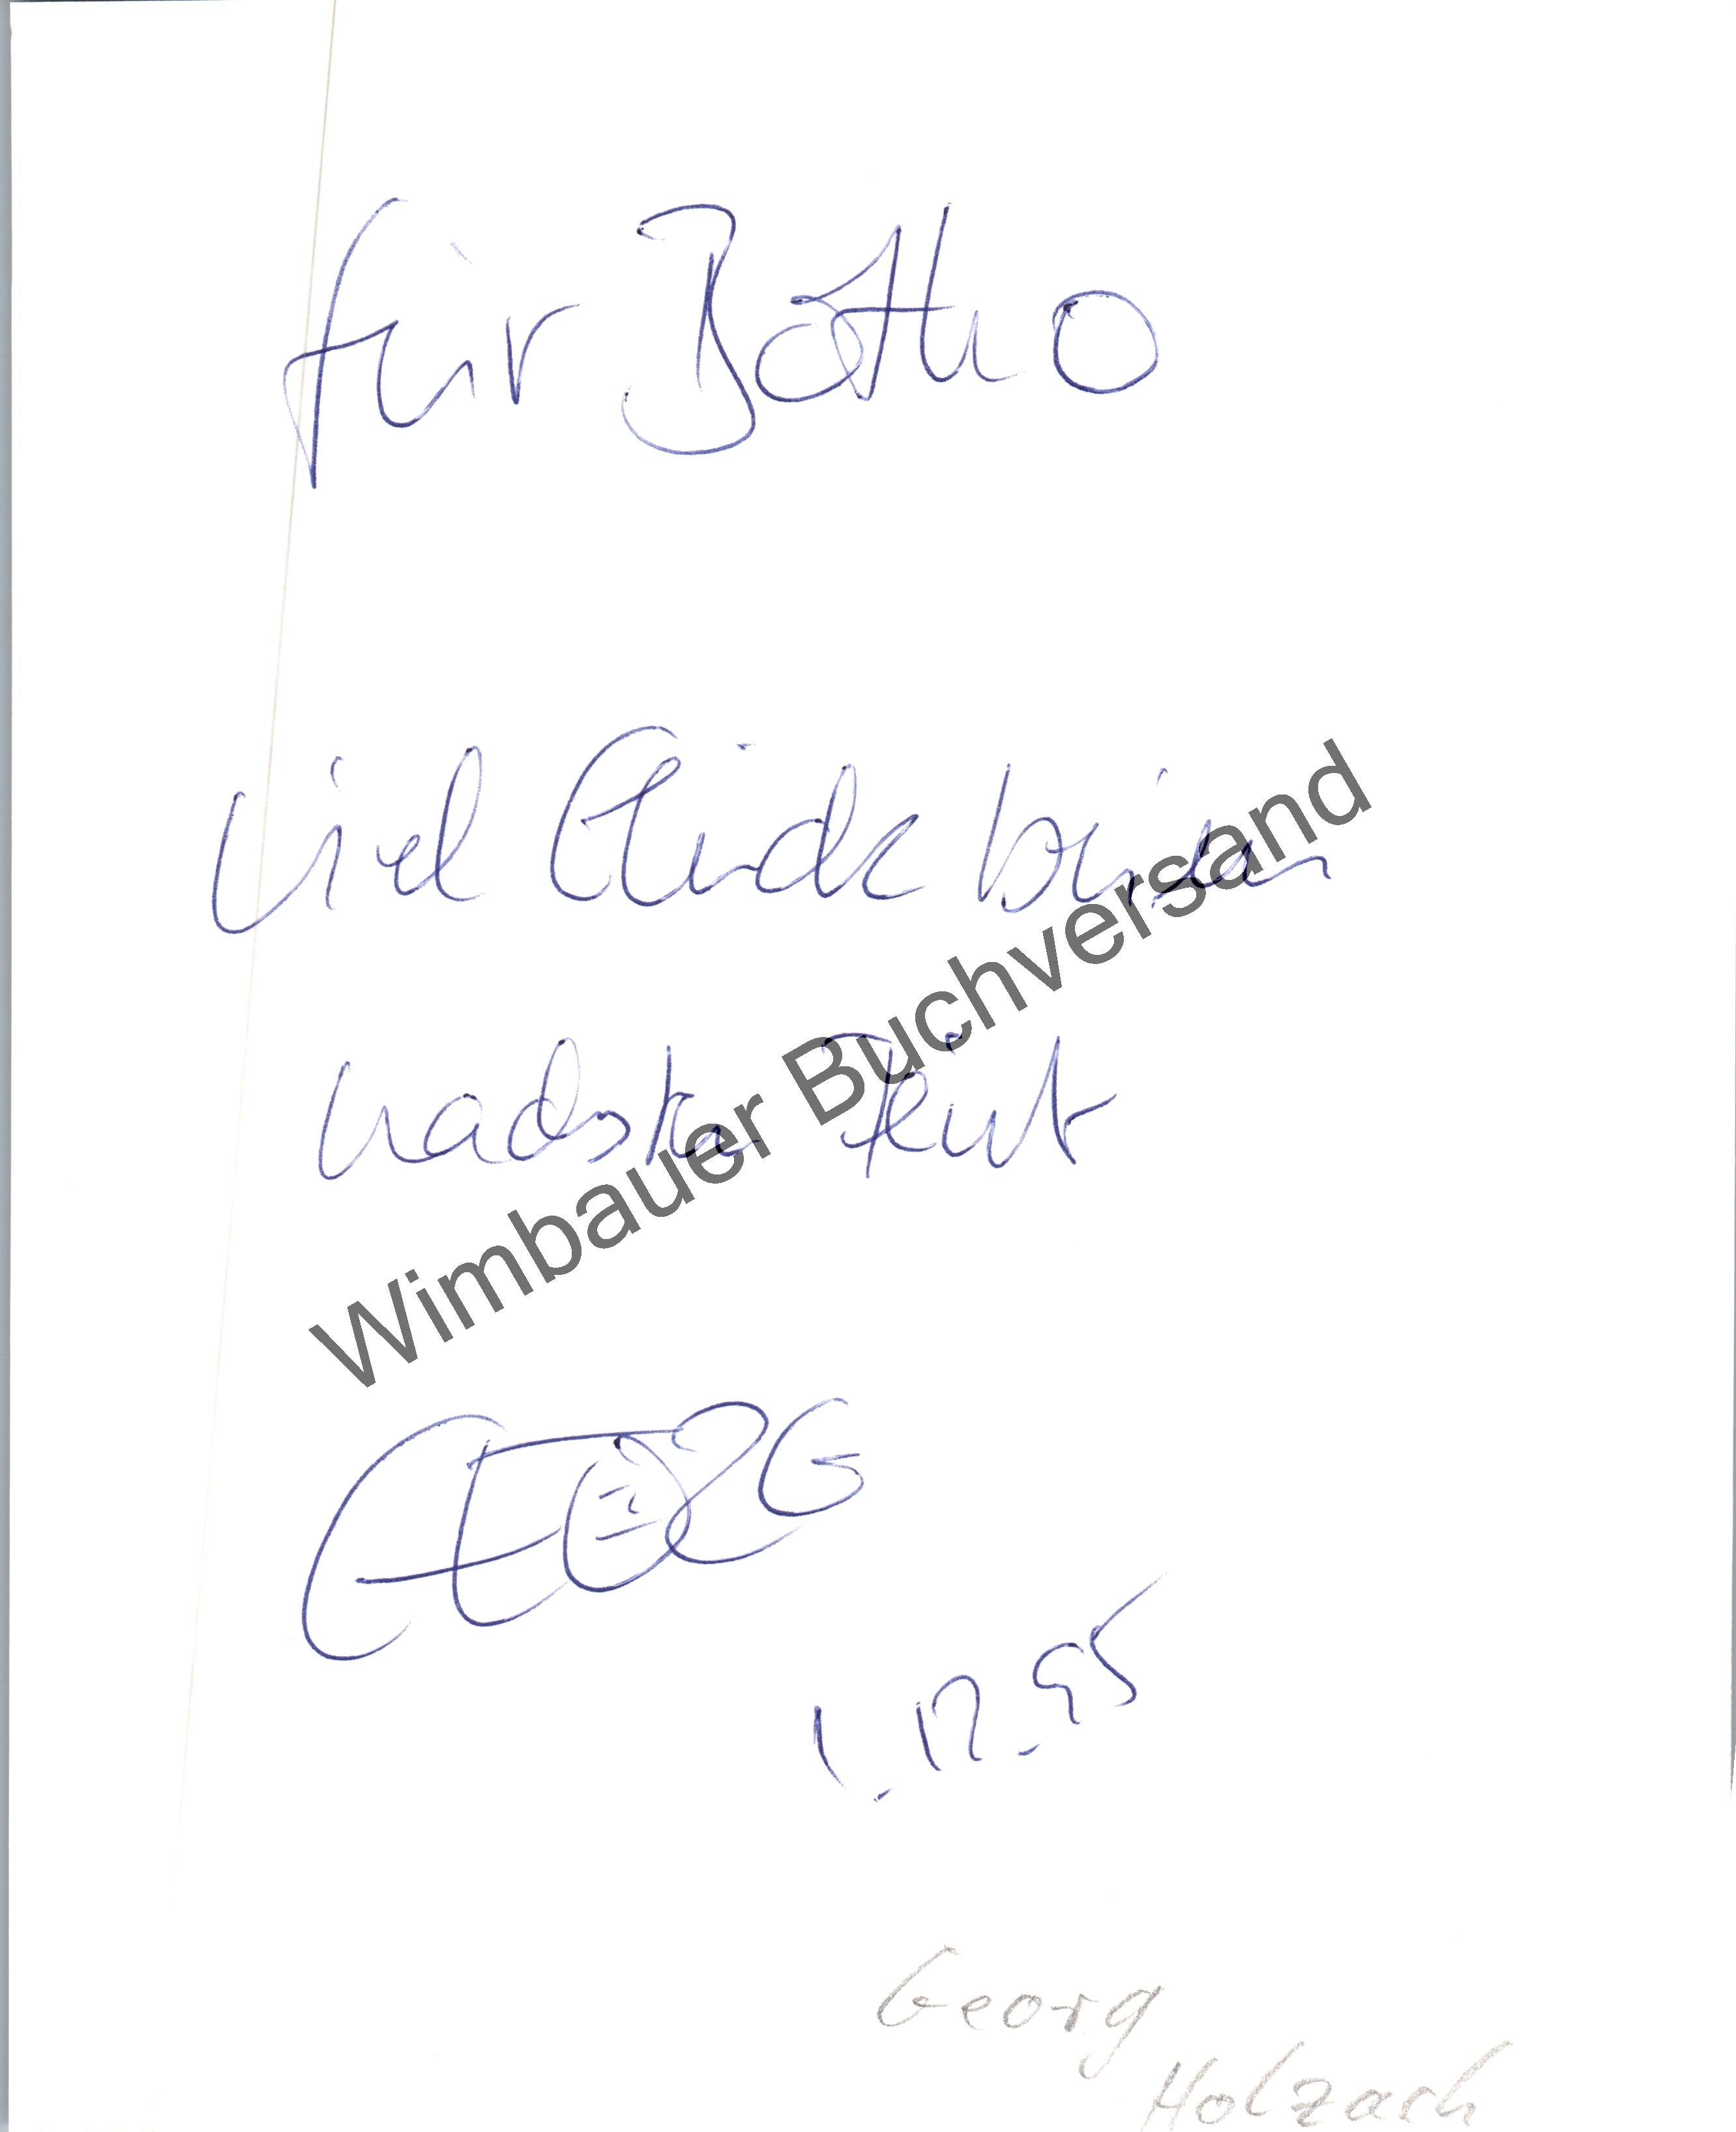 für Botho
Viel Freude beim
nächsten
Wimbauer Buchversand
1.12.95
Georg
Holzach